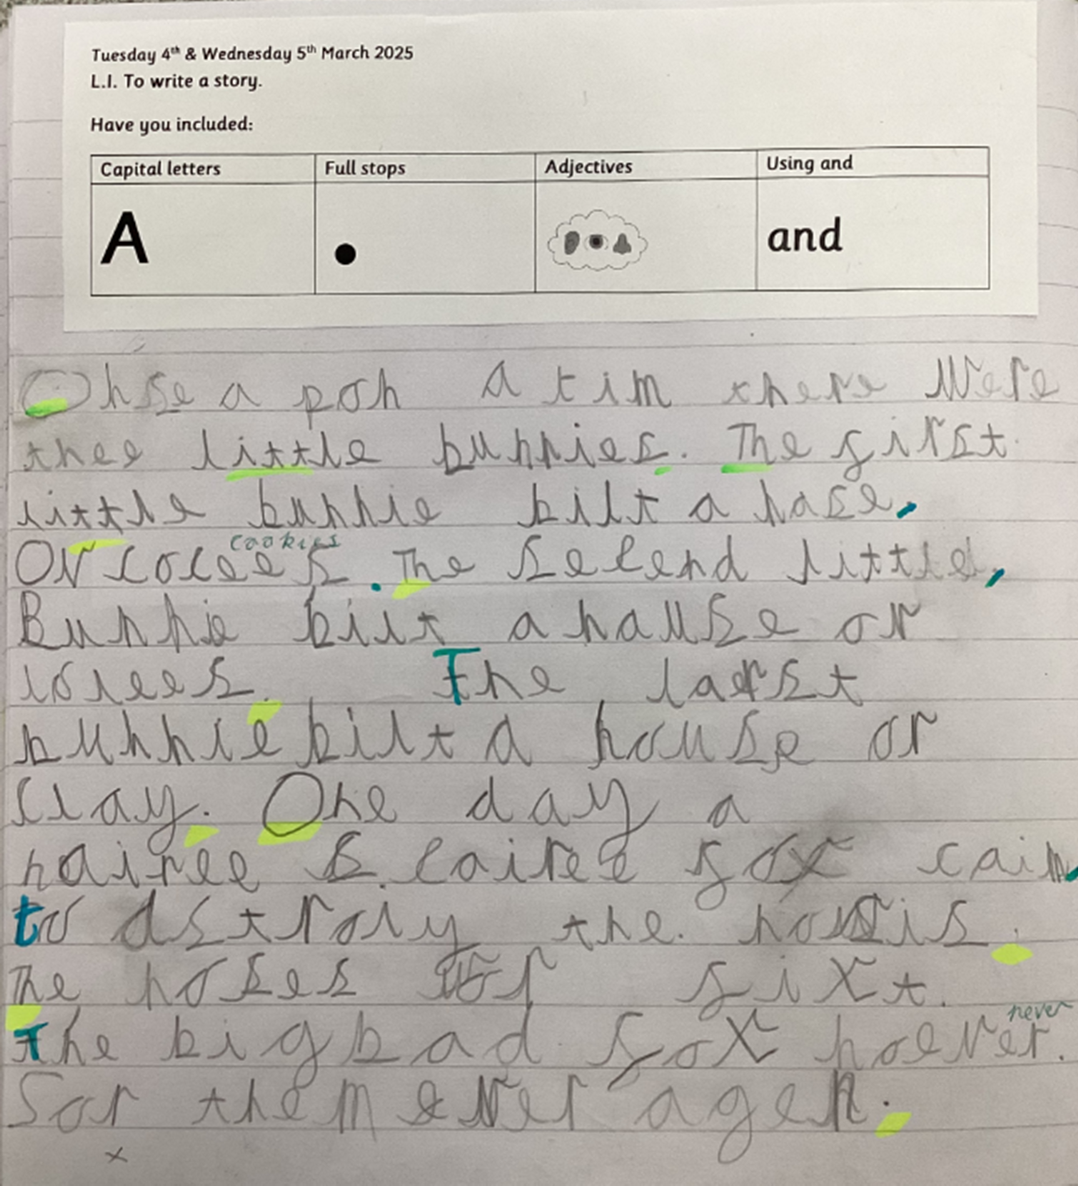 Tuesday 4th & Wednesday 5th March 2025
L.I. To write a story.
Have you included:
Capital letters Full stops Adjectives Using and
A . and
Onse a pon A tim there Were
thee little bunnies. The first
little bunnie bilt a hase,
cookies
OV cocees. The Second little,
Bunnie bilt a hause or
lolees. The larst
bunnie bilt a house or
Clay. One day a
hairee Scairee fox caim
to dstroiy the housis.
The hoses fixt.
The big bad fox hoever.
never
Sor them ever agen.
x